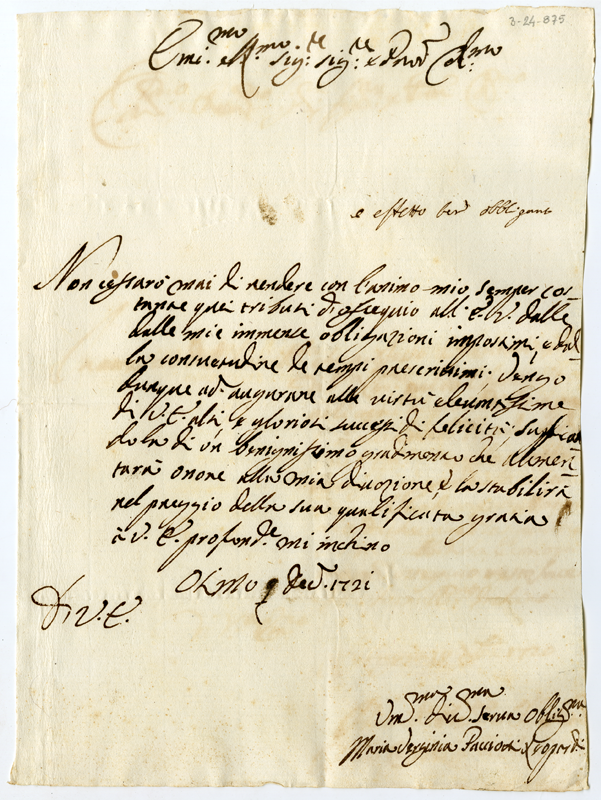 3-24-875
Emi.mo e R.mo Sig.re Sig.re e Pron Col.mo
e effetto ben obbligante
Non cessarò mai di rendere con l'animo mio sempre cos
tante quei tributi d'ossequio all'E.V. dalle
dalle mie immense obligazioni impostimi, e dal
la consuetudine de tempi prescrittimi. Vengo
dunque ad augurare alle virtù eleuatissime
di V.E. alti, e gloriosi successi di felicità, supplican
dola di un benignissimo gradimento che
onore alla mia diuozione, e la stabilirà
nel preggio della sua qualificata grazia
à V.E. profond.e mi inchino
Olmo 9 Dec. 1721
Di V.E.
Vm.ma Diu.ma serua Oblig.ma
Maria Verginia Pacciotti Leopardi